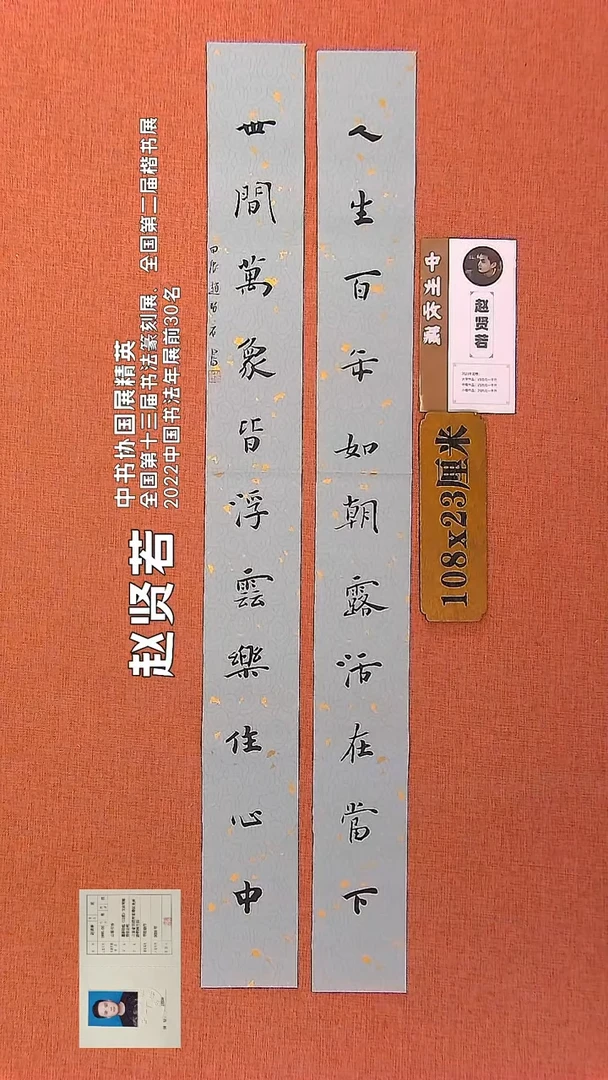 人生百年如朝露活在當下
世間萬象皆浮雲樂住心中
赵贤若
中书协国展精英
全国第十三届书法篆刻展、全国第二届楷书展
2022中国书法年展前30名
赵贤若
108x23厘米